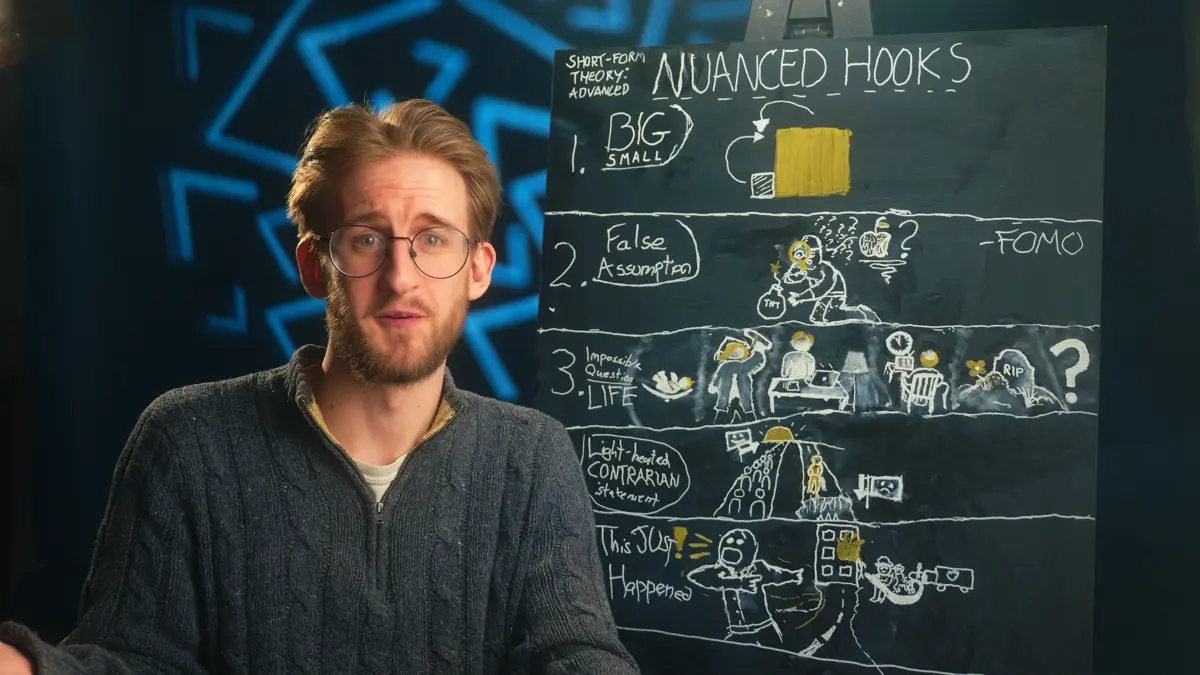 SHORT-FORM
THEORY:
ADVANCED
NUANCED HOOKS
1. BIG
SMALL
2. False
Assumption
?
-FOMO
TNT
3. Impossible
Question
LIFE
RIP
?
Light-heated
CONTRARIAN
statement
This JUST
!
Happened